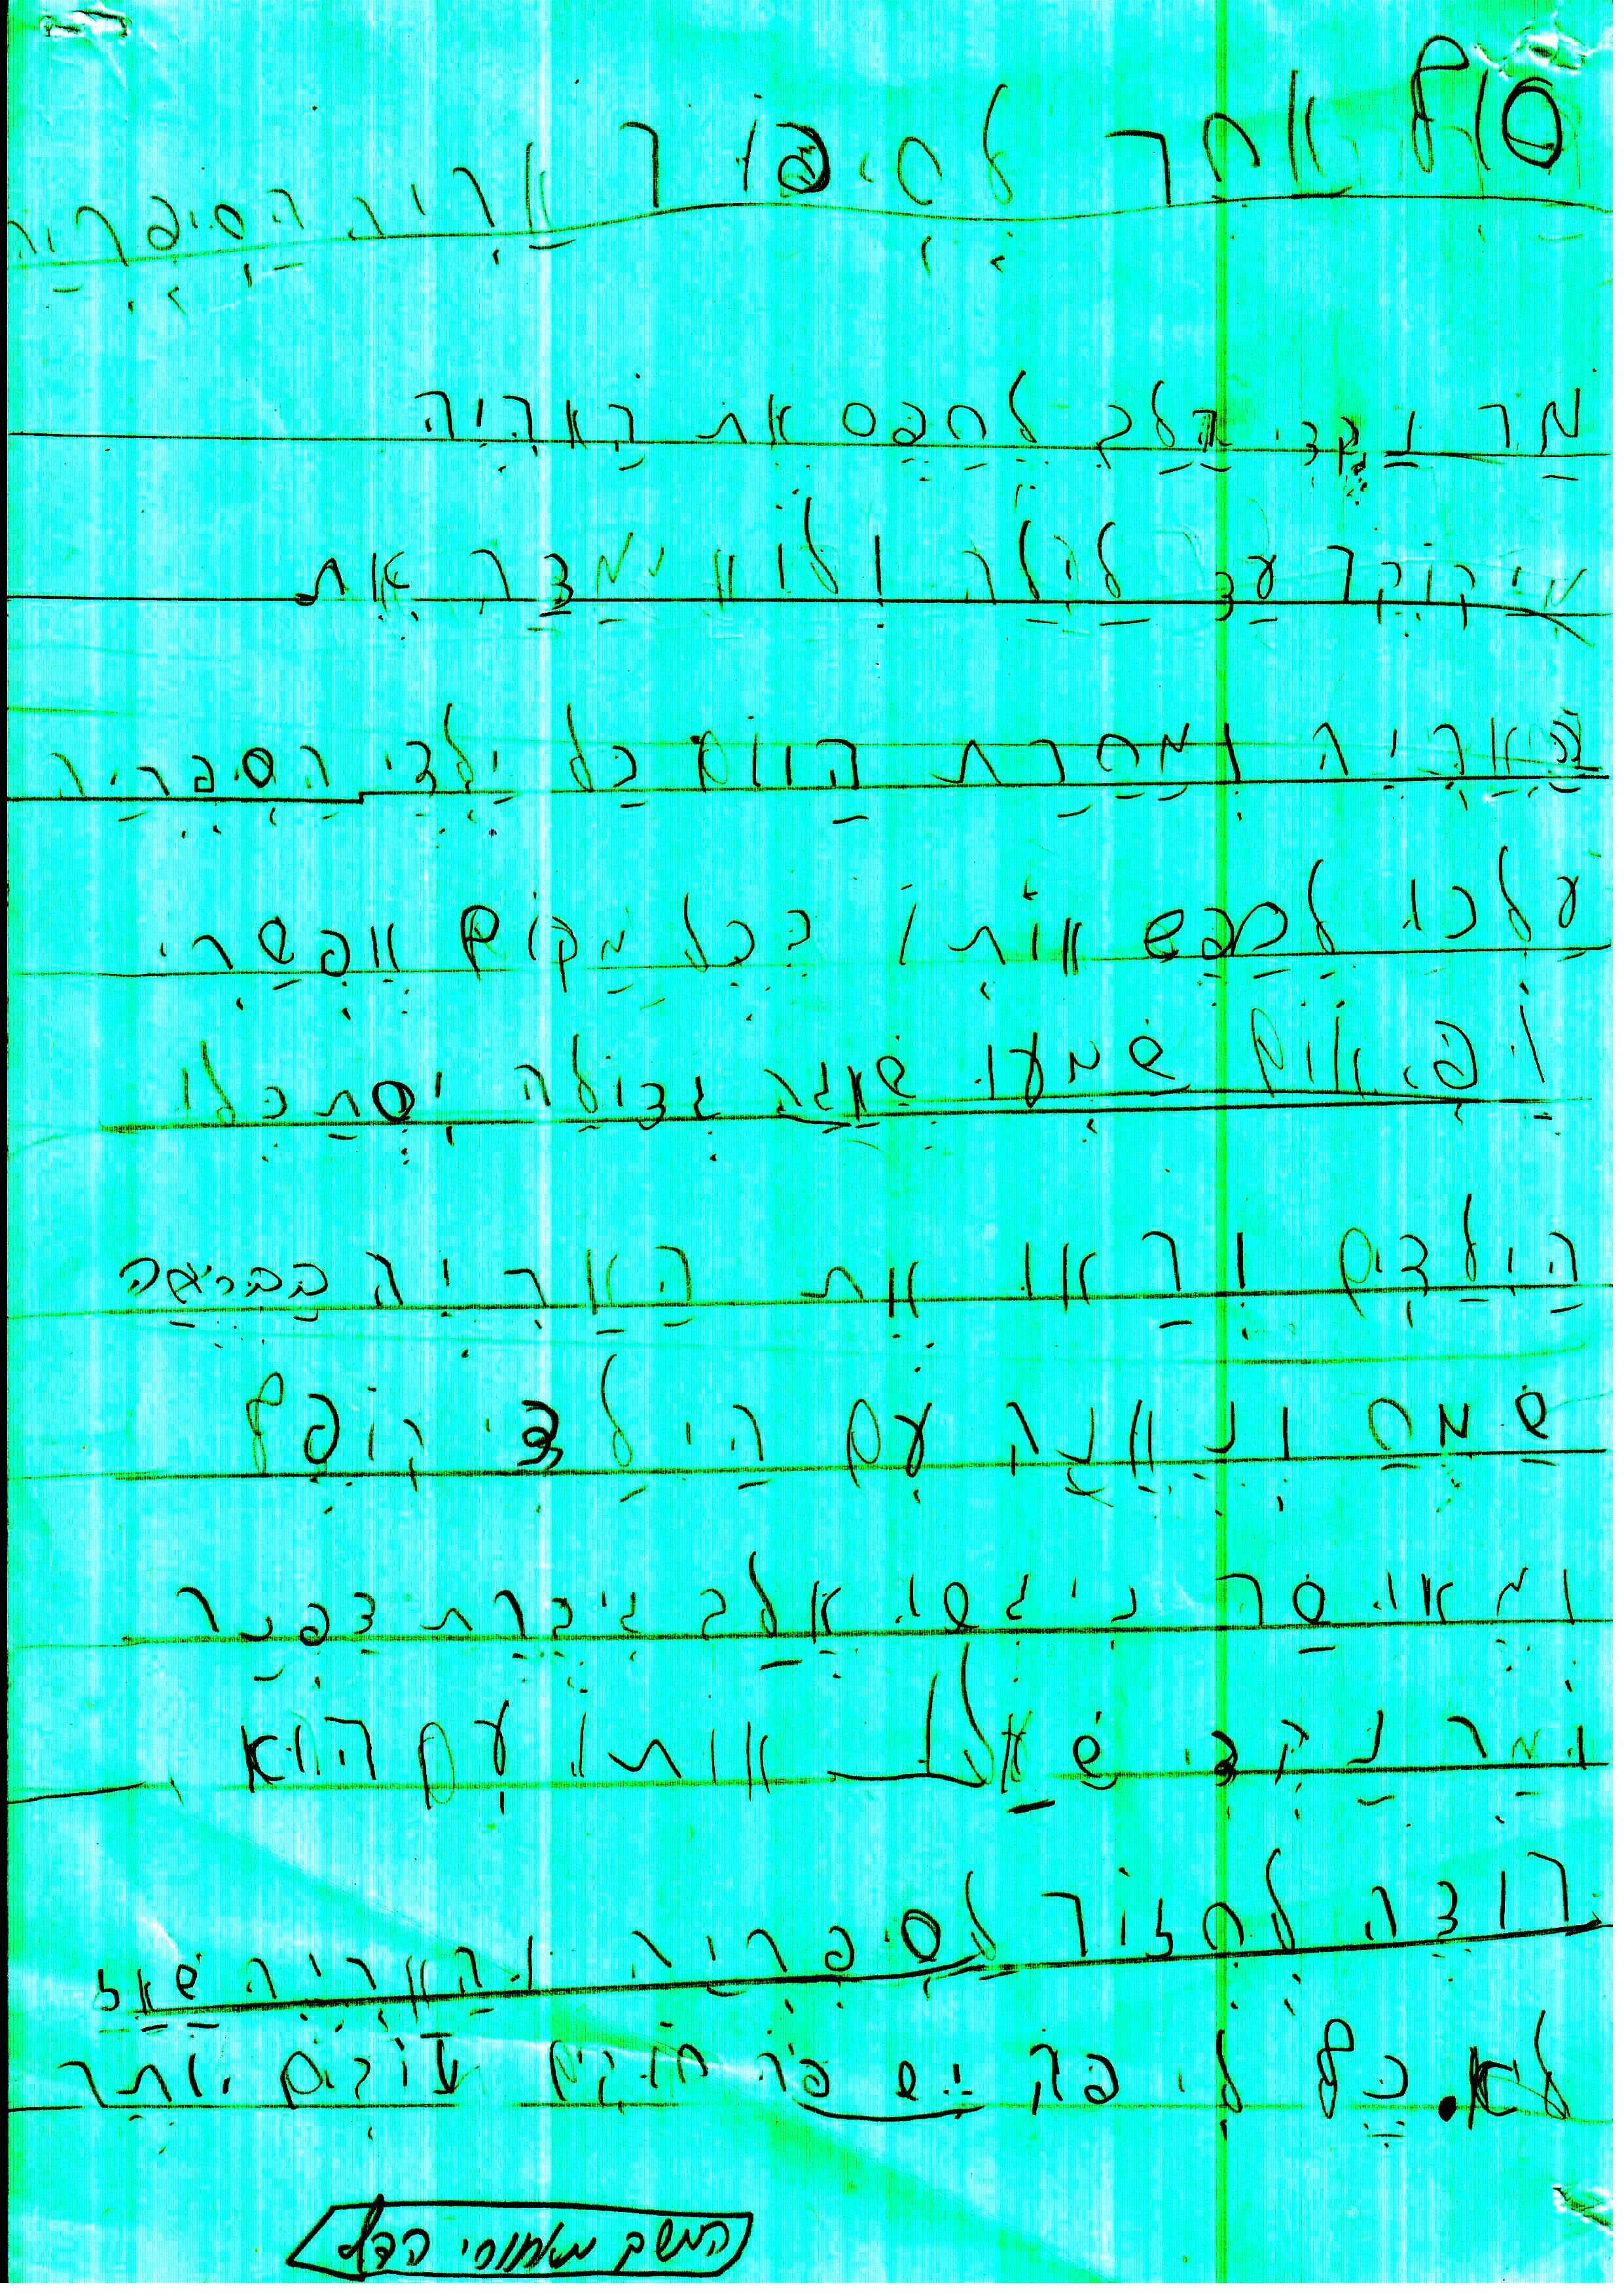 סוף אחר לסיפור אריה הסיפריה
מר נקדי הלך לחפס את האריה
מיבוקר עד לילה ולוא ימצה את
האריה ומחרת היום כל ילדי הסיפריה
עלכו לחפש אותו בכל מקום אפשרי
ופיאום שמעו שאגה גדולה יסתכלו
הילדים וראו את האריה
שמח ונאנה עם הילדי קופף
ומאושר ניגשו אלב גיברת דפנר
ומר נקדי שאלו אותו עם הוא
רוצה לחזור לסיפריה והאריה שאל
לא. כיף לי פה יש פה חוקים עובים יותר
המשך מאחורי הדף